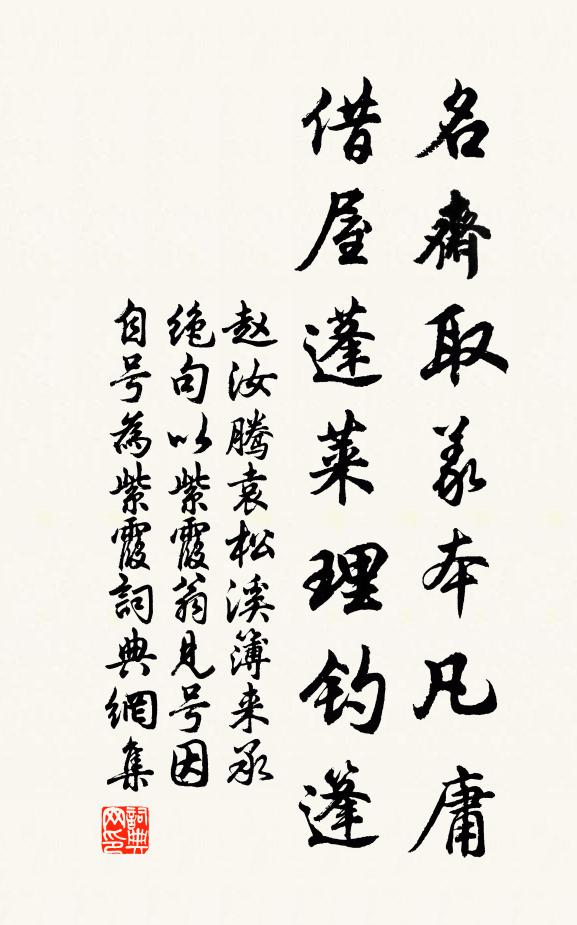 名齋取義本凡庸
借屋蓬莱理钓篷
赵汝騰袁松溪簿来承
绝句以紫霞翁見号因
自号為紫霞詞典網集
詞典网印